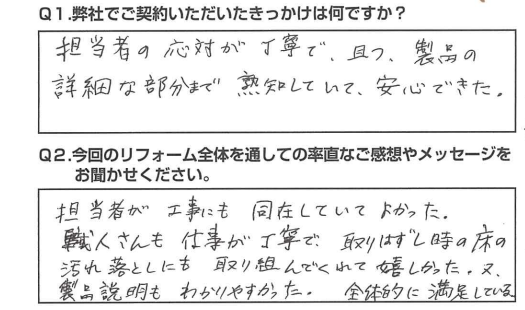 Q1.弊社でご契約いただいたきっかけは何ですか？
担当者の応対が丁寧で、且つ、製品の
詳細な部分まで熟知していて、安心できた。
Q2.今回のリフォーム全体を通しての率直なご感想やメッセージを
お聞かせください。
担当者が工事にも同在していてよかった。
職人さんも仕事が丁寧で取りはずし時の床の
汚れ落としにも取り組んでくれて嬉しかった。又、
製品説明もわかりやすかった。 全体的に満足している